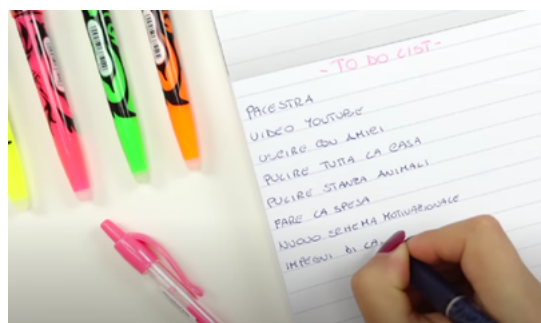 - TO DO LIST -
PALESTRA
VIDEO YOUTUBE
USCIRE CON AMICI
PULIRE TUTTA LA CASA
PULIRE STANZA ANIMALI
FARE LA SPESA
NUOVO SCHEMA MOTIVAZIONALE
IMPEGNI DI